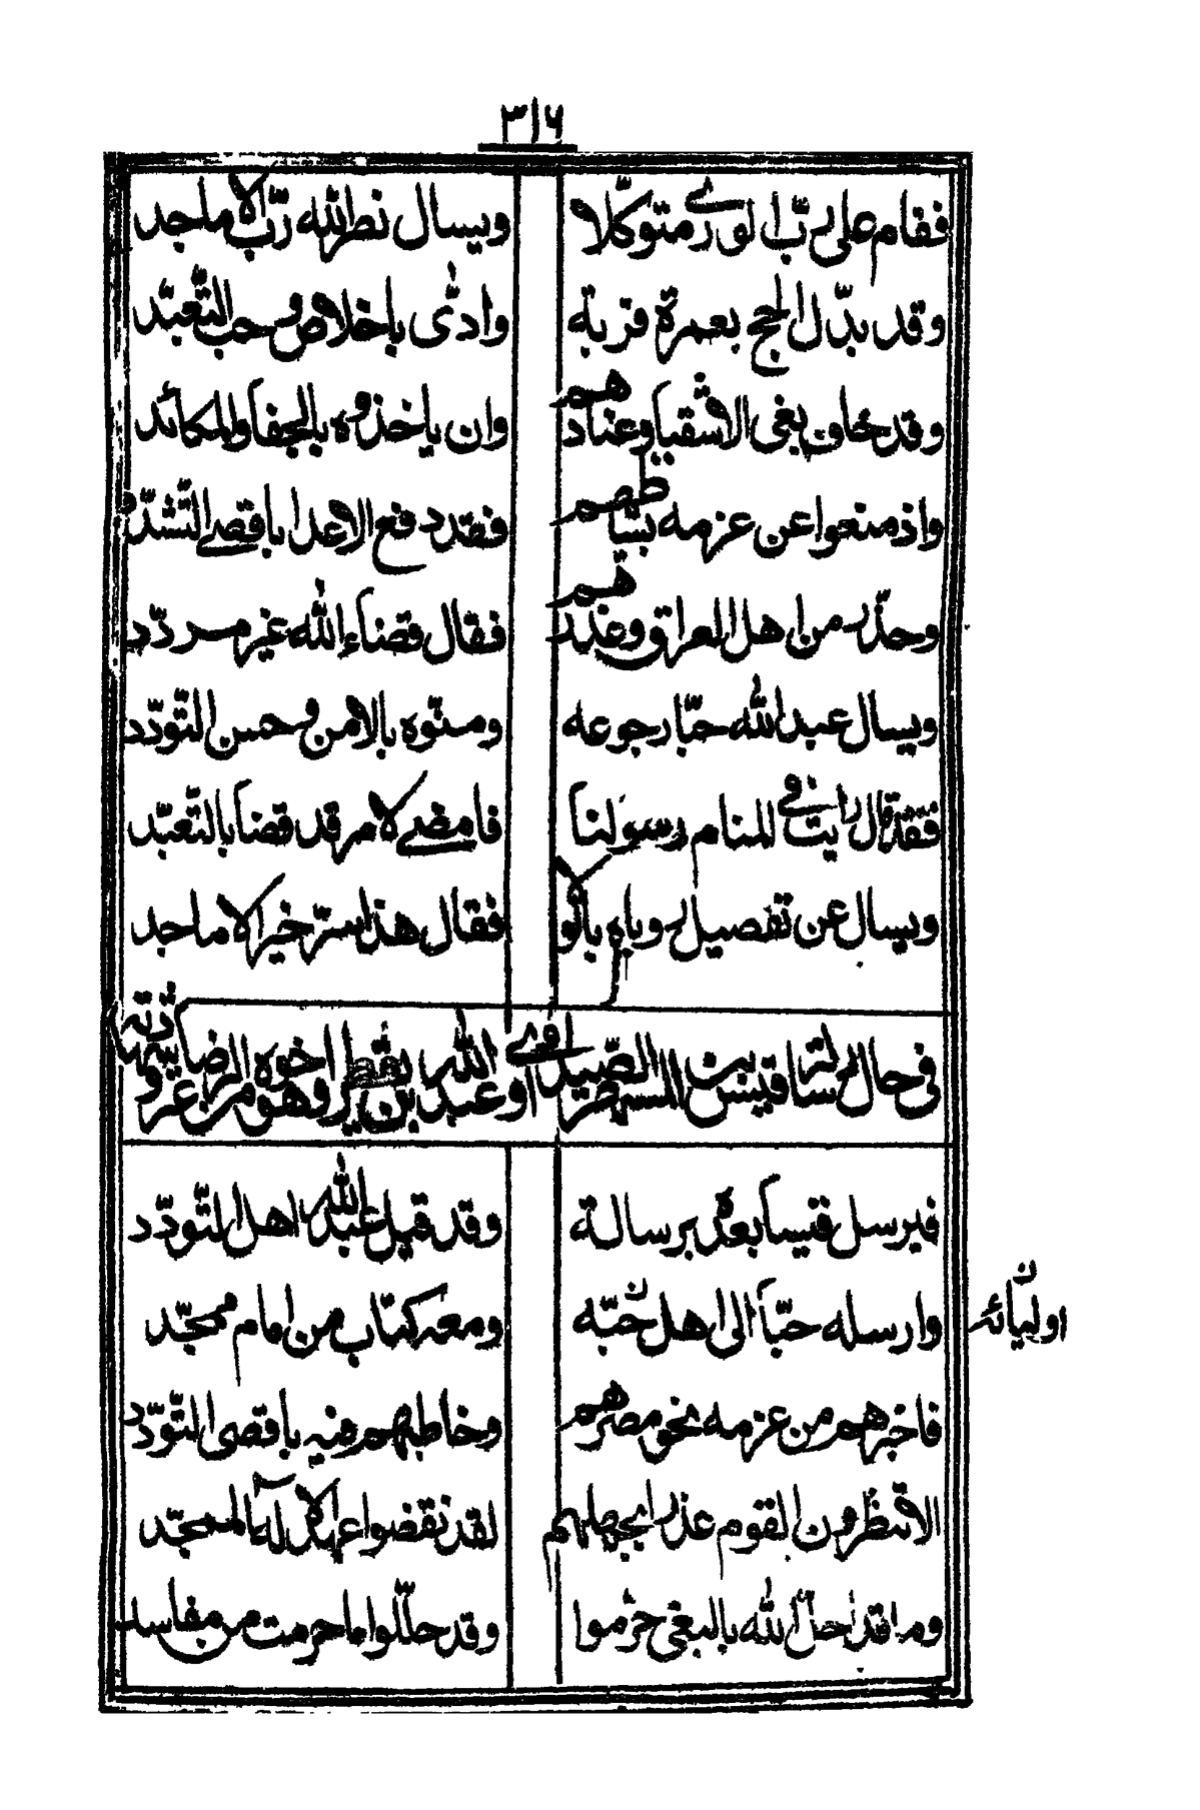 ٣١٦
فقام على رب الورى متوكّلا ويسال نصر الله ربّ الاماجد
وقد بدّل الحج بعمرة قربة وادّى باخلاص وحب التّعبّد
وقد خاف بغى الاشقيا وعنادهم وان ياخذوه بالجفا والمكائد
واذ منعوا عن عزمه بشياطهم فقد دفع الاعدا باقصى التّشدّد
وحذّر من اهل العراق وغدرهم فقال قضاء الله غير مردّد
ويسال عبد الله حبّا رجوعه ومنّوه بالامن وحسن التّودّد
فقد قال رايت فى المنام رسولنا فامضى لامر قد قضا بالتّعبّد
ويسال عن تفصيل روياه بالولا فقال هذا سرّ خير الاماجد
فى حال رسالة قيس بن المسهر الصّيداوى او عبد الله بن يقطر اخوه الرضا وهو من
فيرسل قيسا بعده برسالة وقد قيل عبد الله اهل التّودّد
وارسله حبّا الى اهل حبّه ومعه كتاب من امام ممجّد
اوليائه ن
فاخبرهم من عزمه نحو مصرهم وخاطبهم فيه باقصى التّودّد
الا تنظرون القوم عذرا بجهلهم لقد نقضوا عهد الاله الممجّد
وما قد احلّ الله بالبغى حرّموا وقد حلّلوا ما حرمت من مفاسد